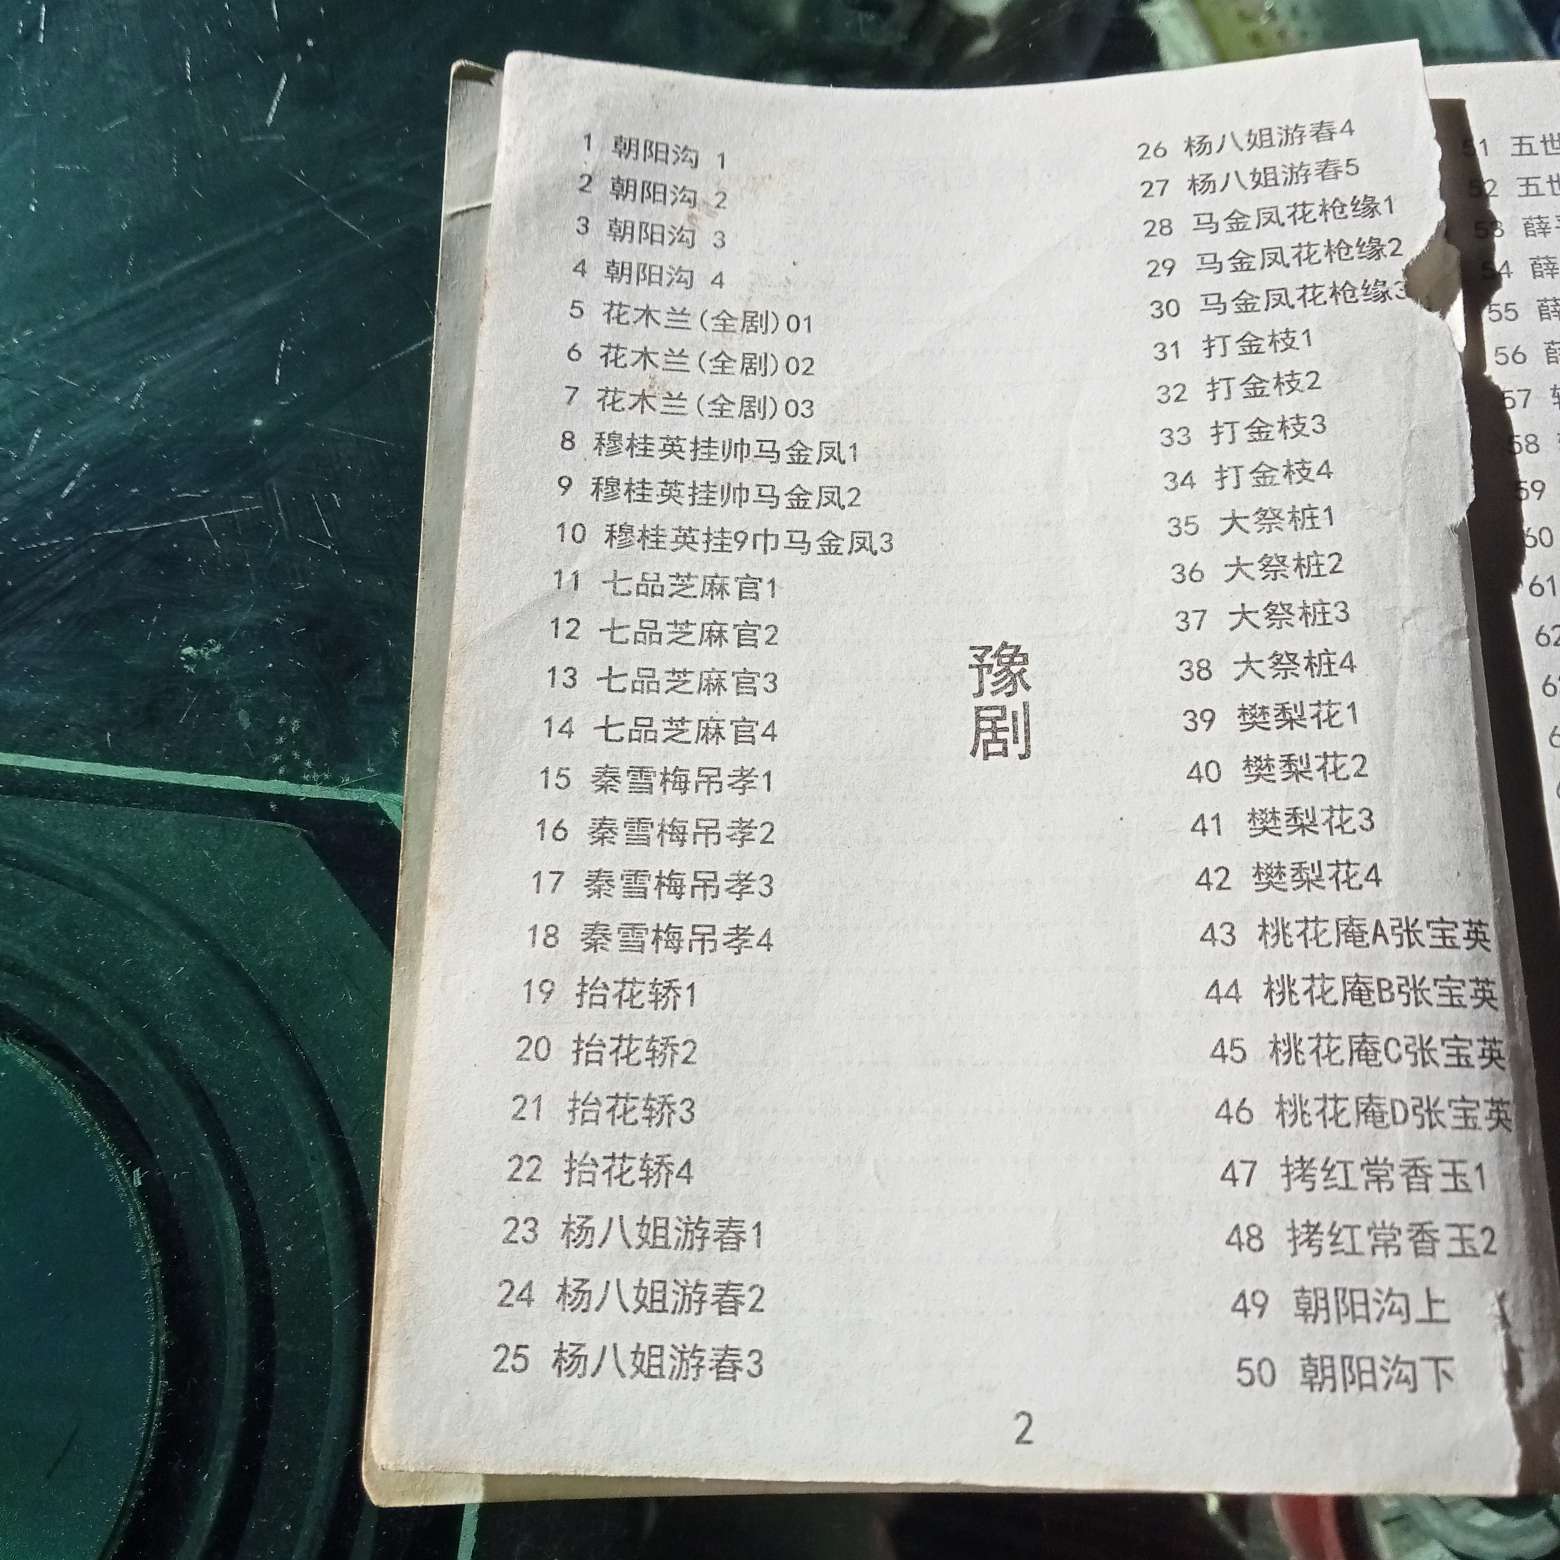 1 朝阳沟 1
2 朝阳沟 2
3 朝阳沟 3
4 朝阳沟 4
5 花木兰(全剧)01
6 花木兰(全剧)02
7 花木兰(全剧)03
8 穆桂英挂帅马金凤1
9 穆桂英挂帅马金凤2
10 穆桂英挂9巾马金凤3
11 七品芝麻官1
12 七品芝麻官2
13 七品芝麻官3
14 七品芝麻官4
15 秦雪梅吊孝1
16 秦雪梅吊孝2
17 秦雪梅吊孝3
18 秦雪梅吊孝4
19 抬花轿1
20 抬花轿2
21 抬花轿3
22 抬花轿4
23 杨八姐游春1
24 杨八姐游春2
25 杨八姐游春3
豫剧
26 杨八姐游春4
27 杨八姐游春5
28 马金凤花枪缘1
29 马金凤花枪缘2
30 马金凤花枪缘3
31 打金枝1
32 打金枝2
33 打金枝3
34 打金枝4
35 大祭桩1
36 大祭桩2
37 大祭桩3
38 大祭桩4
39 樊梨花1
40 樊梨花2
41 樊梨花3
42 樊梨花4
43 桃花庵A张宝英
44 桃花庵B张宝英
45 桃花庵C张宝英
46 桃花庵D张宝英
47 拷红常香玉1
48 拷红常香玉2
49 朝阳沟上
50 朝阳沟下
2
51 五世
52 五世
53 薛
54 薛
55 薛
56
57
58
59
60
61
62